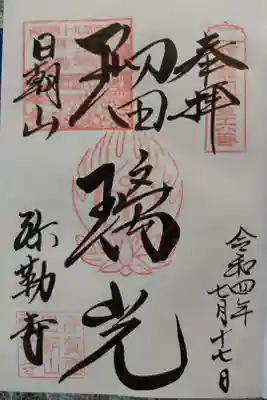 奉拝
令和四年
七月十七日
瑠璃光
日朝山
弥勒寺